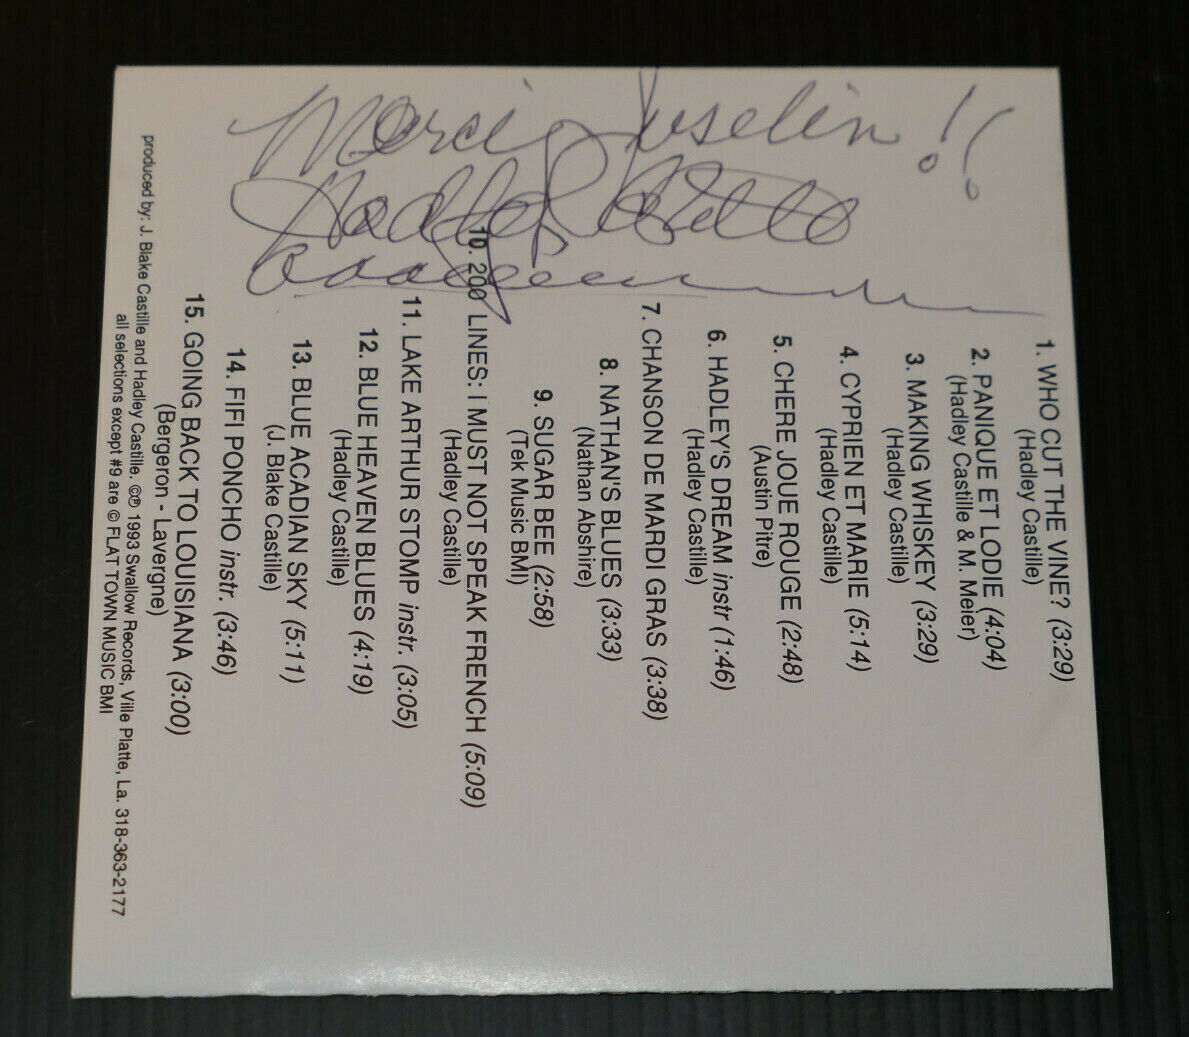 Merci !!
Hadley Castille
1. WHO CUT THE VINE? (3:29)
(Hadley Castille)
2. PANIQUE ET LODIE (4:04)
(Hadley Castille & M. Meier)
3. MAKING WHISKEY (3:29)
(Hadley Castille)
4. CYPRIEN ET MARIE (5:14)
(Hadley Castille)
5. CHERE JOUE ROUGE (2:48)
(Austin Pitre)
6. HADLEY'S DREAM instr (1:46)
(Hadley Castille)
7. CHANSON DE MARDI GRAS (3:38)
8. NATHAN'S BLUES (3:33)
(Nathan Abshire)
9. SUGAR BEE (2:58)
(Tek Music BMI)
10. 200 LINES: I MUST NOT SPEAK FRENCH (5:09)
(Hadley Castille)
11. LAKE ARTHUR STOMP instr. (3:05)
12. BLUE HEAVEN BLUES (4:19)
(Hadley Castille)
13. BLUE ACADIAN SKY (5:11)
(J. Blake Castille)
14. FIFI PONCHO instr. (3:46)
15. GOING BACK TO LOUISIANA (3:00)
(Bergeron - Lavergne)
produced by: J. Blake Castille and Hadley Castille. ©℗ 1993 Swallow Records, Ville Platte, La. 318-363-2177
all selections except #9 are © FLAT TOWN MUSIC BMI